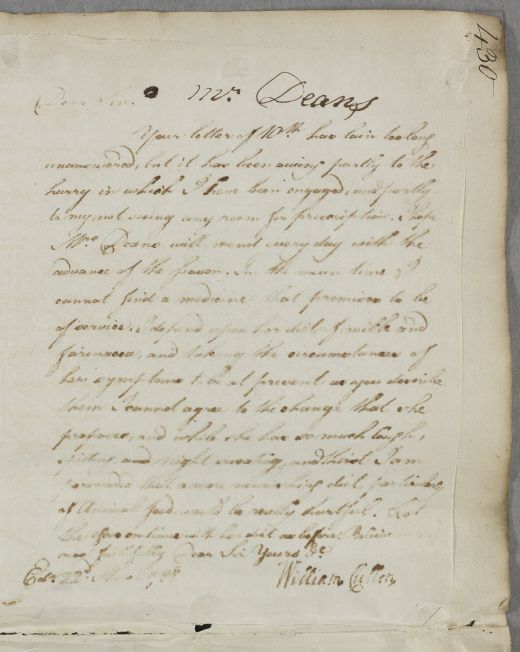 430
Dear Sir. Mrs. Deans
Your letter of 10th has lain too long
unanswered, but it has been owing partly to the
hurry in which I have been engaged, and partly
to my not seeing any room for prescription. I hope
Mrs Deans will mend every day with the
advance of the season. In the mean time I
cannot find a medicine that promises to be
of service. I depend upon her diet of milk and
farinacea, and taking the circumstances of
her symptoms to be at present as you describe
them I cannot agree to the change that she
proposes, and while she has so much Cough,
spitting, and night sweating, and thirst I am
persuaded that a more nourishing diet, particularly
of Animal food would be really hurtful. Let
her continue with her diet as before. Believe
faithfully Dear Sir Yours &c
Edr. 22d William Cullen